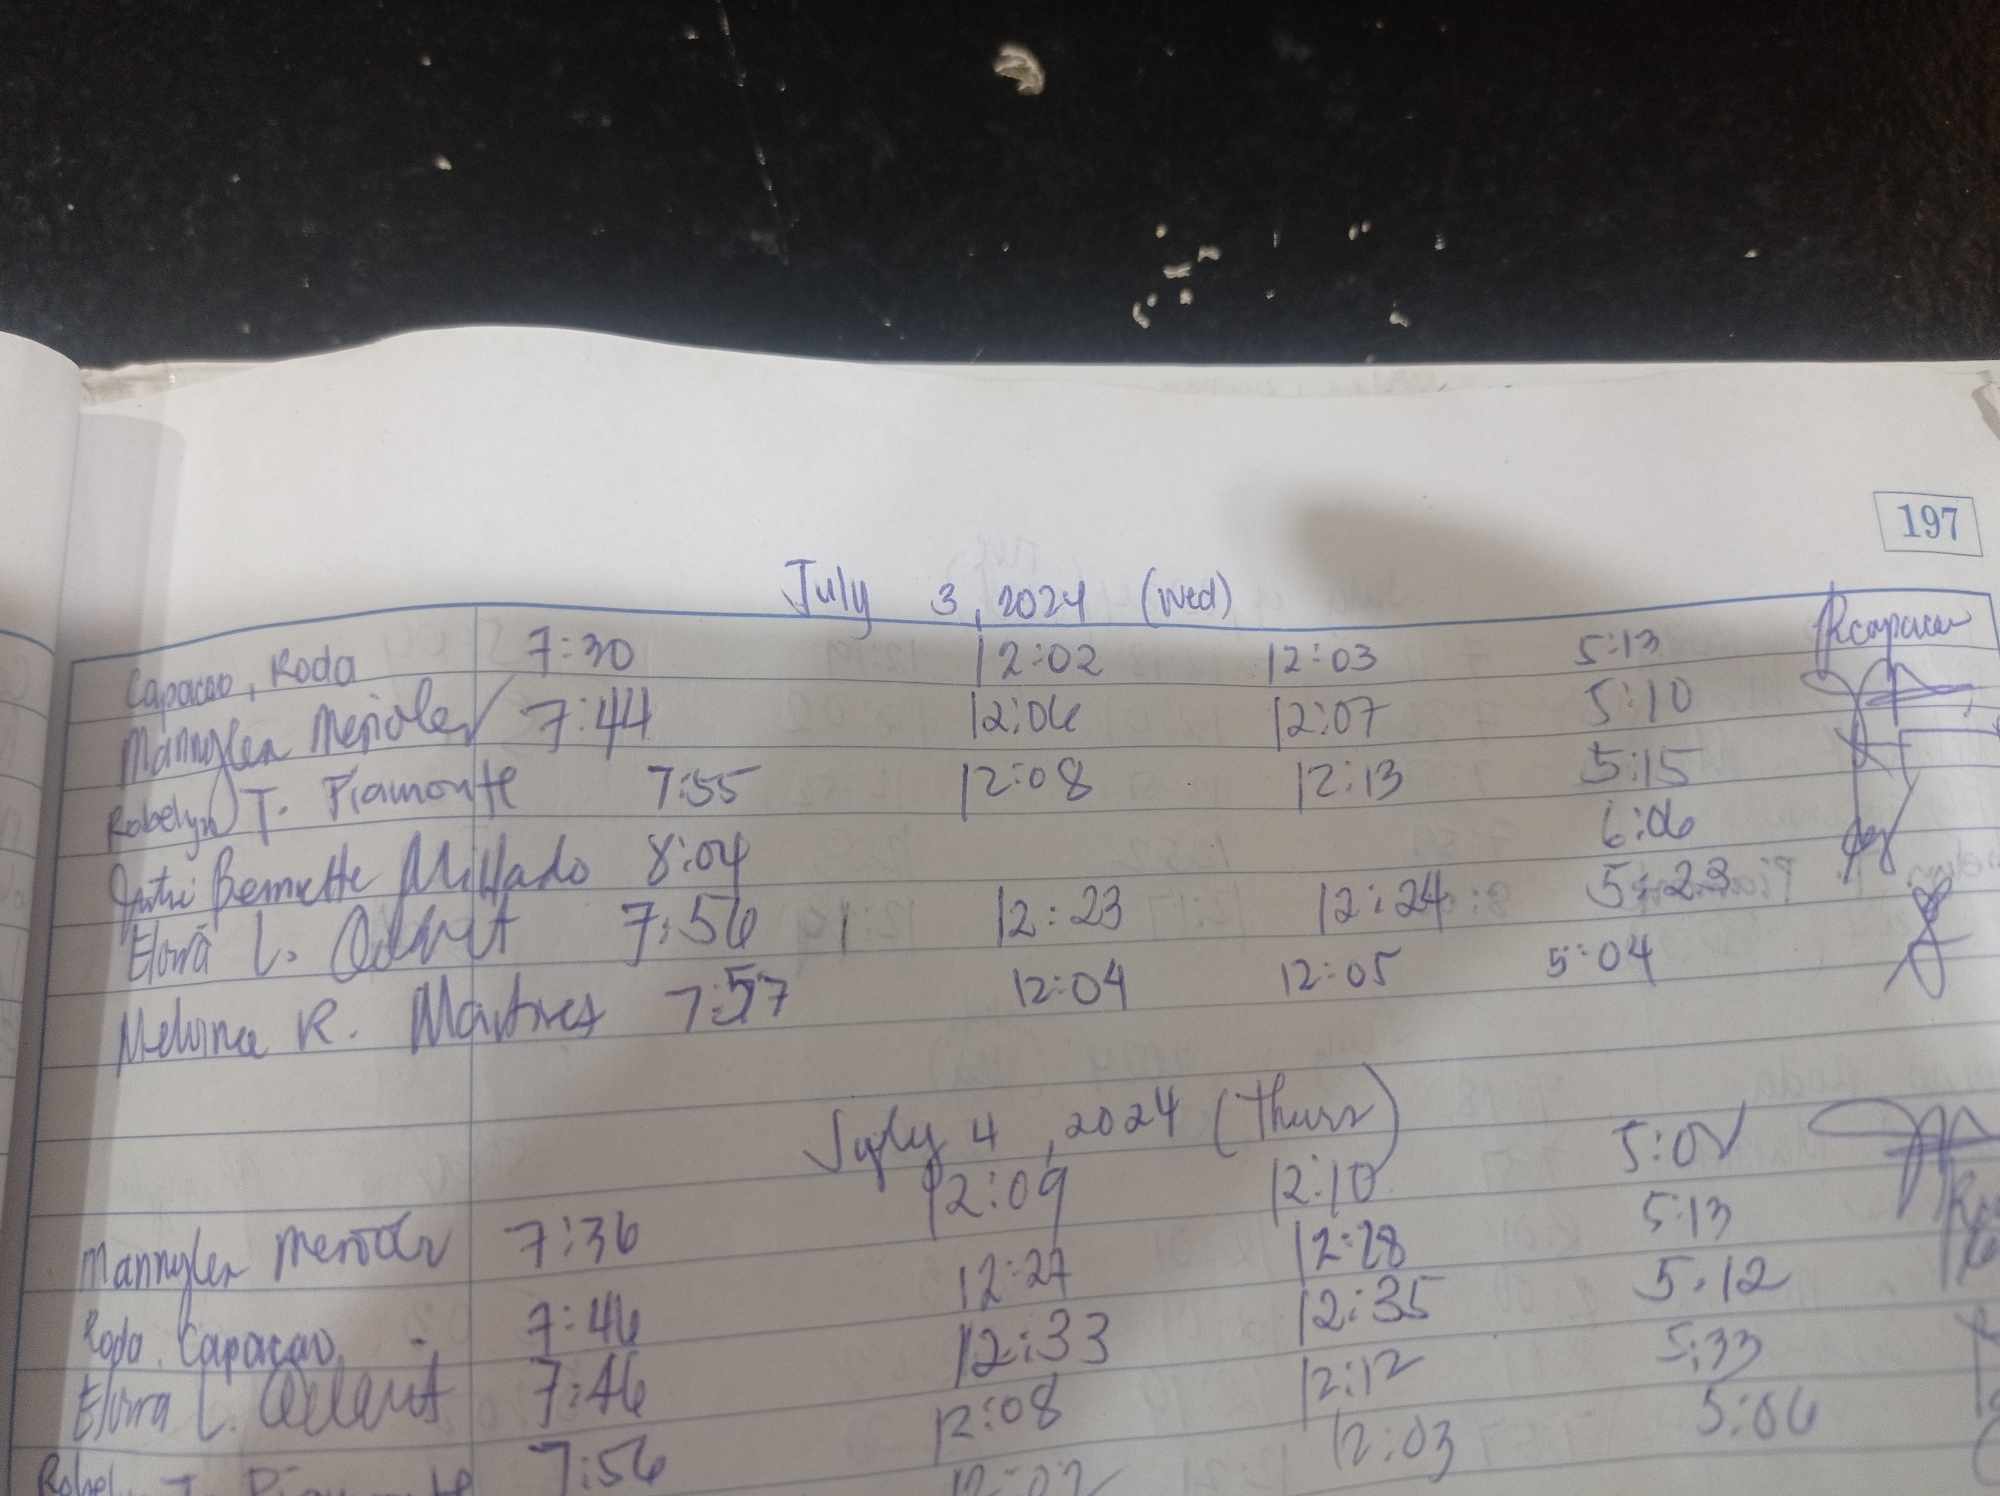 197
July 3, 2024 (Wed)
Capacao, Roda 7:30 12:02 12:03 5:13 Rcapacao
Mannylen 7:44 12:06 12:07 5:10
Robelyn T. Piamonte 7:55 12:08 12:13 5:15
Bernette 8:04 6:06
L. 7:56 12:23 12:24 5:23
Melvina R. 7:57 12:04 12:05 5:04
July 4, 2024 (Thurs)
Mannylen 7:36 12:09 12:10
Roda Capacao 7:46 12:27 12:28 5:13
L. 7:46 12:33 12:35 5:12
Robelyn T. Piamonte 7:56 12:08 12:12 5:33
12:03 5:06